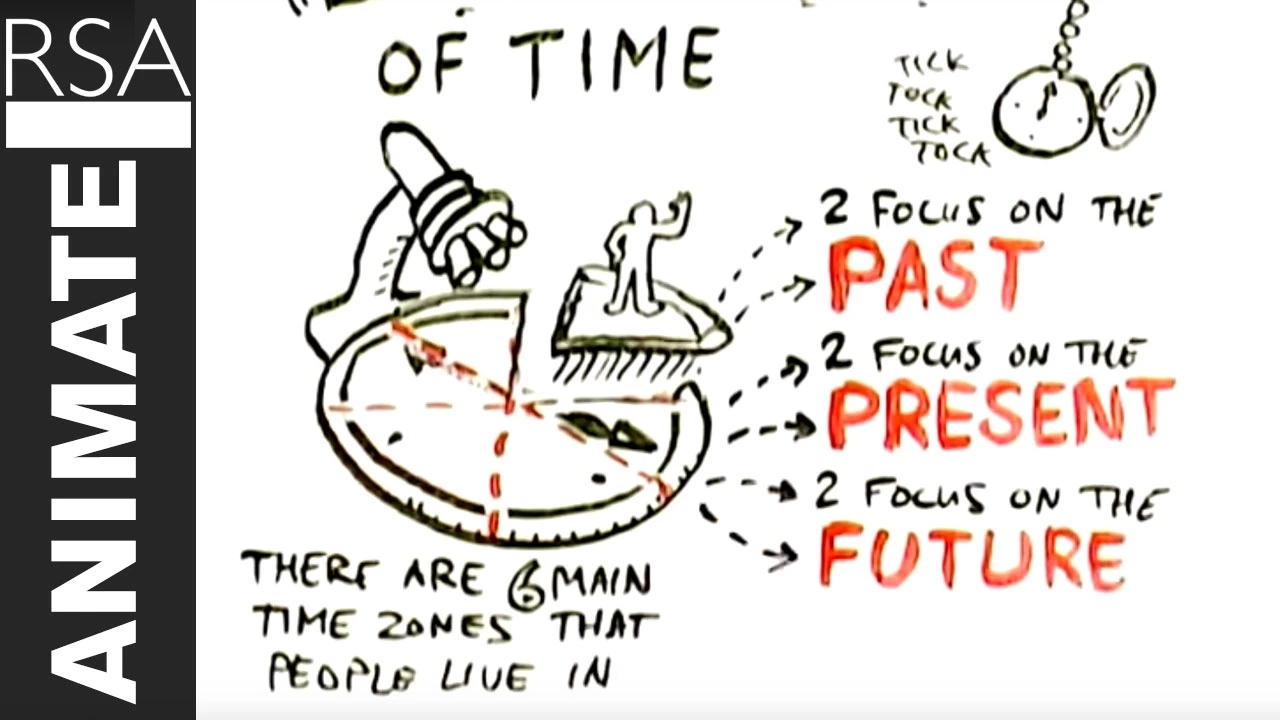 RSA
ANIMATE
OF TIME
TICK
TOCK
TICK
TOCK
2 FOCUS ON THE
PAST
2 FOCUS ON THE
PRESENT
2 FOCUS ON THE
FUTURE
THERE ARE 6 MAIN
TIME ZONES THAT
PEOPLE LIVE IN